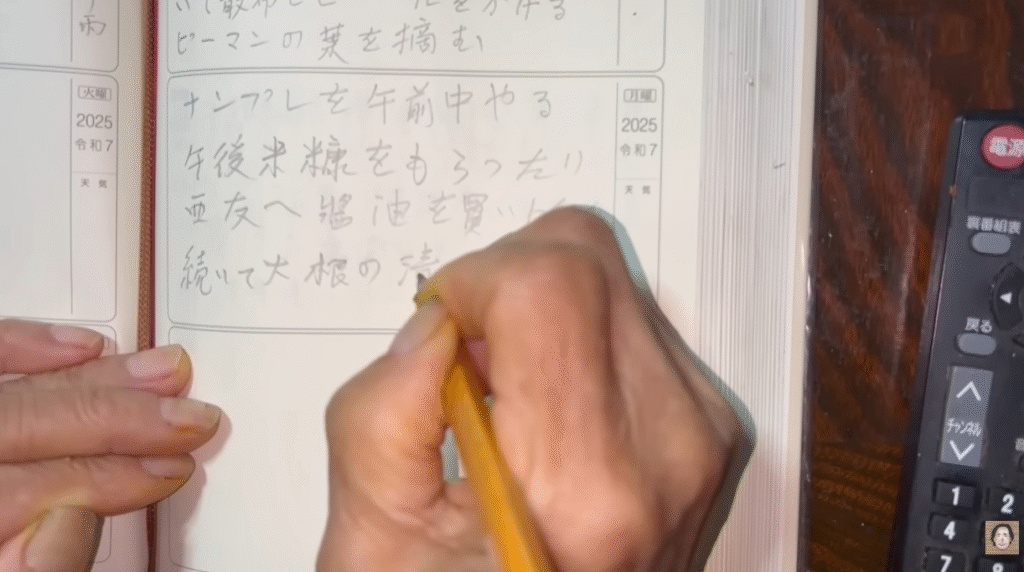 雨
ピーマンの葉を摘む
火曜
2025
令和7
天気
ナンプレを午前中やる
午後米糠をもらったり
亜友へ醤油を買い
続いて大根の
月曜
2025
令和7
天気
電源
裏番組表
戻る
チャンネル
1
2
4
7
8